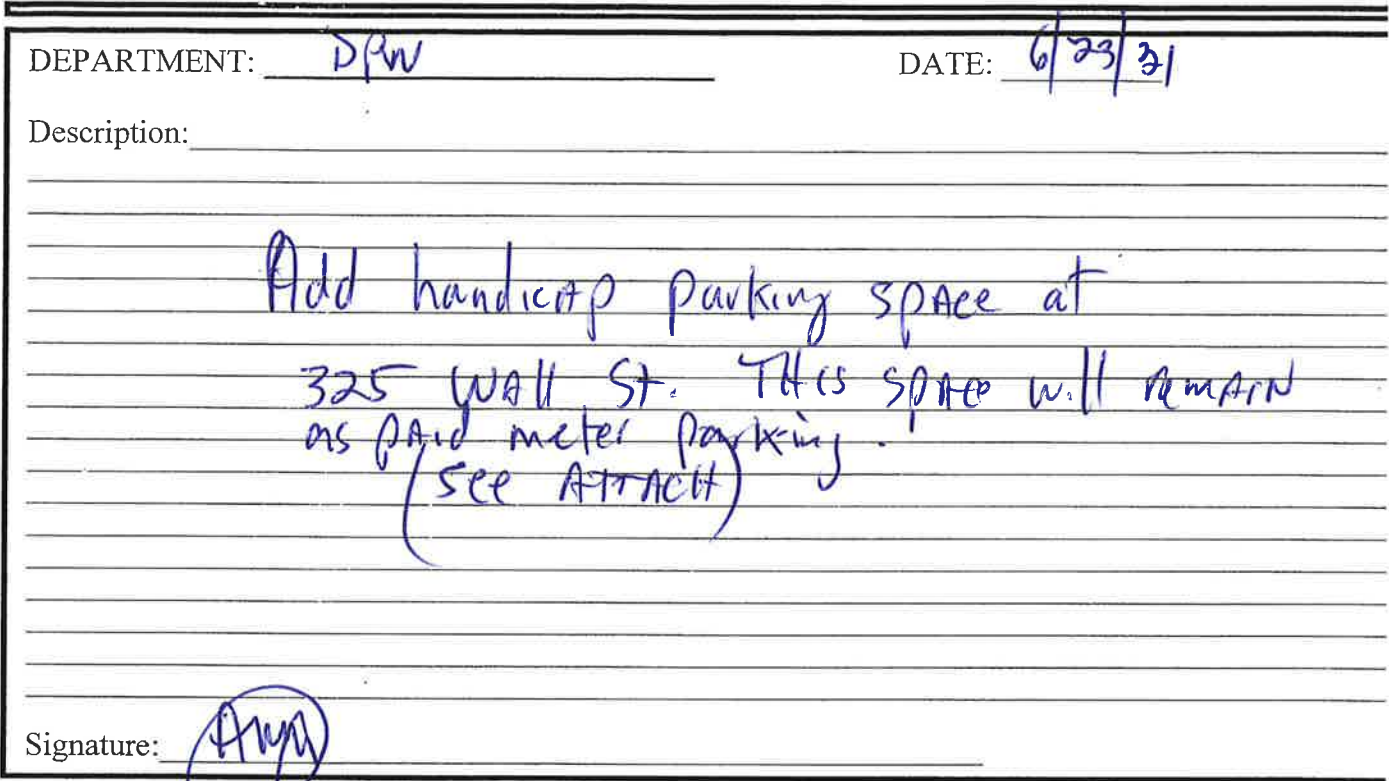 DEPARTMENT: DPW DATE: 6/23/21
Description:
Add handicap parking space at
325 Wall St. THis space will remain
as paid meter parking.
(see ATTACH)
Signature: